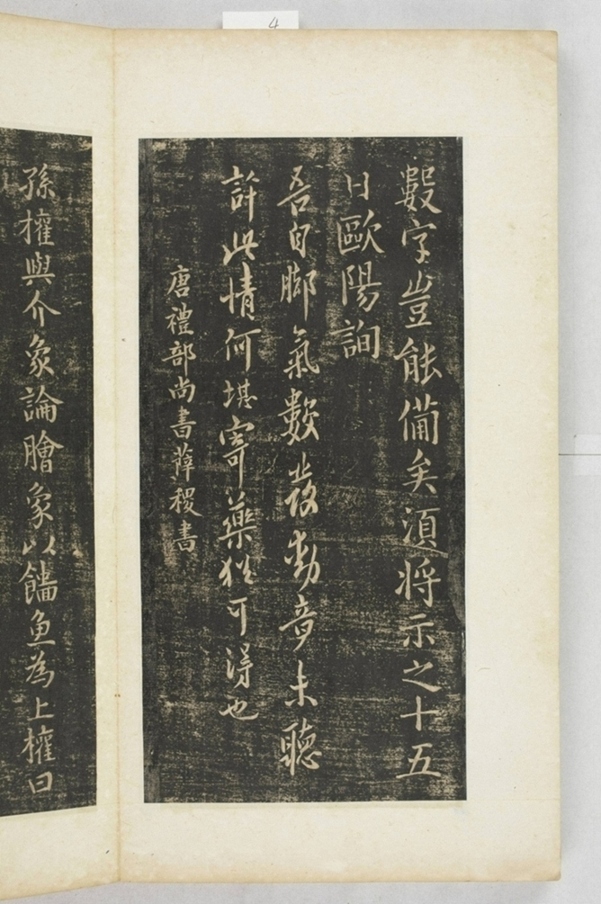 4
數字豈能備矣須將示之十五
日歐陽詢
吾自脚氣數發動竟未聽
許此情何堪寄藥猶可得也
唐禮部尚書薛稷書
孫權與介象論膾象以鯔魚為上權曰